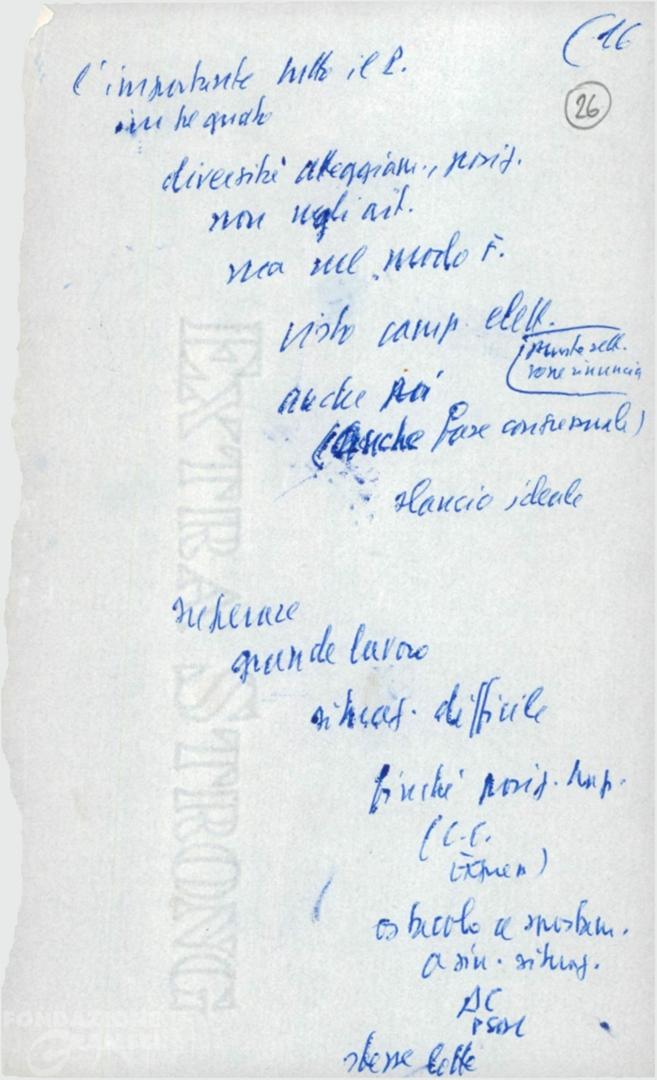 (16
26
l'importante tutto il P.
impegnato
diversità atteggiam., posiz.
non negli ast.
ma nel modo F.
visto camp. elett.
anche poi
(anche fase congressuale)
slancio ideale
superare
grande lavoro
situaz. difficile
finché posiz. sup.
(C.C.
ostacolo a spostam.
a sin. situaz.
DC
PSDI
stesse lotte
EXTRA STRONG
FONDAZIONE